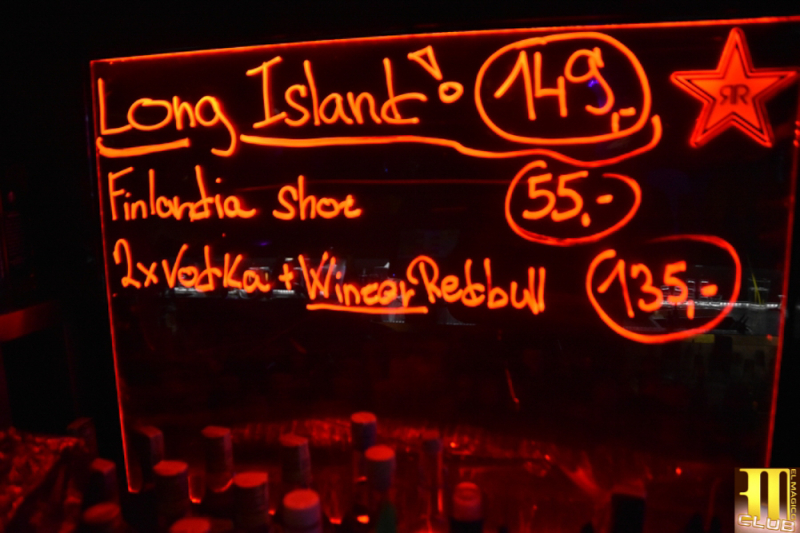 Long Island! 149,-
RR
Finlandia shot 55,-
2x Vodka + Winter Redbull 135,-
M
EL MAGICO
CLUB